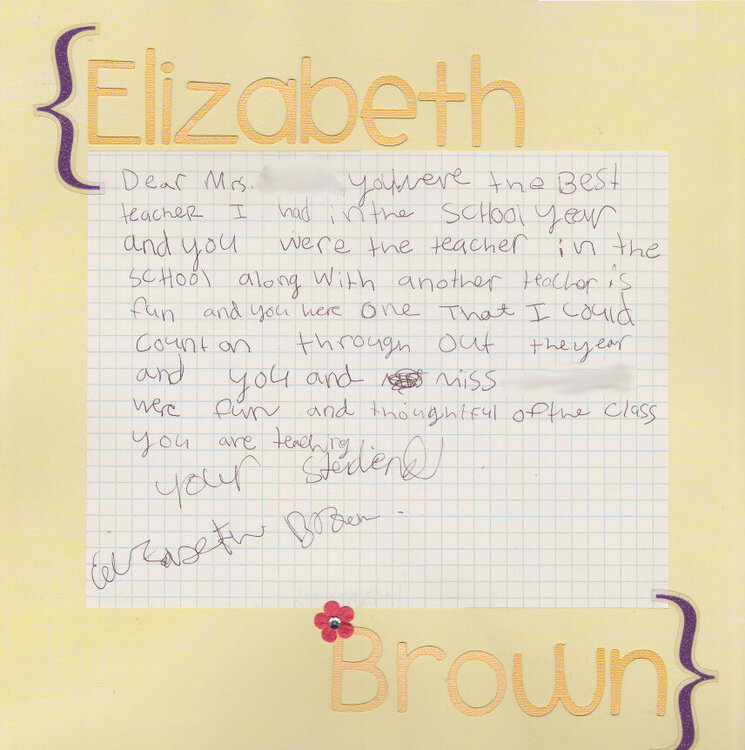 {Elizabeth
Dear Mrs. you were the Best
teacher I had in the SCHOOL year
and you were the teacher in the
SCHOOL along with another teachor is
fun and you here one That I could
count on through out the year
and you and miss
were fun and thoughtful of the class
you are teaching
your student
Elizabeth Brown.
Brown}